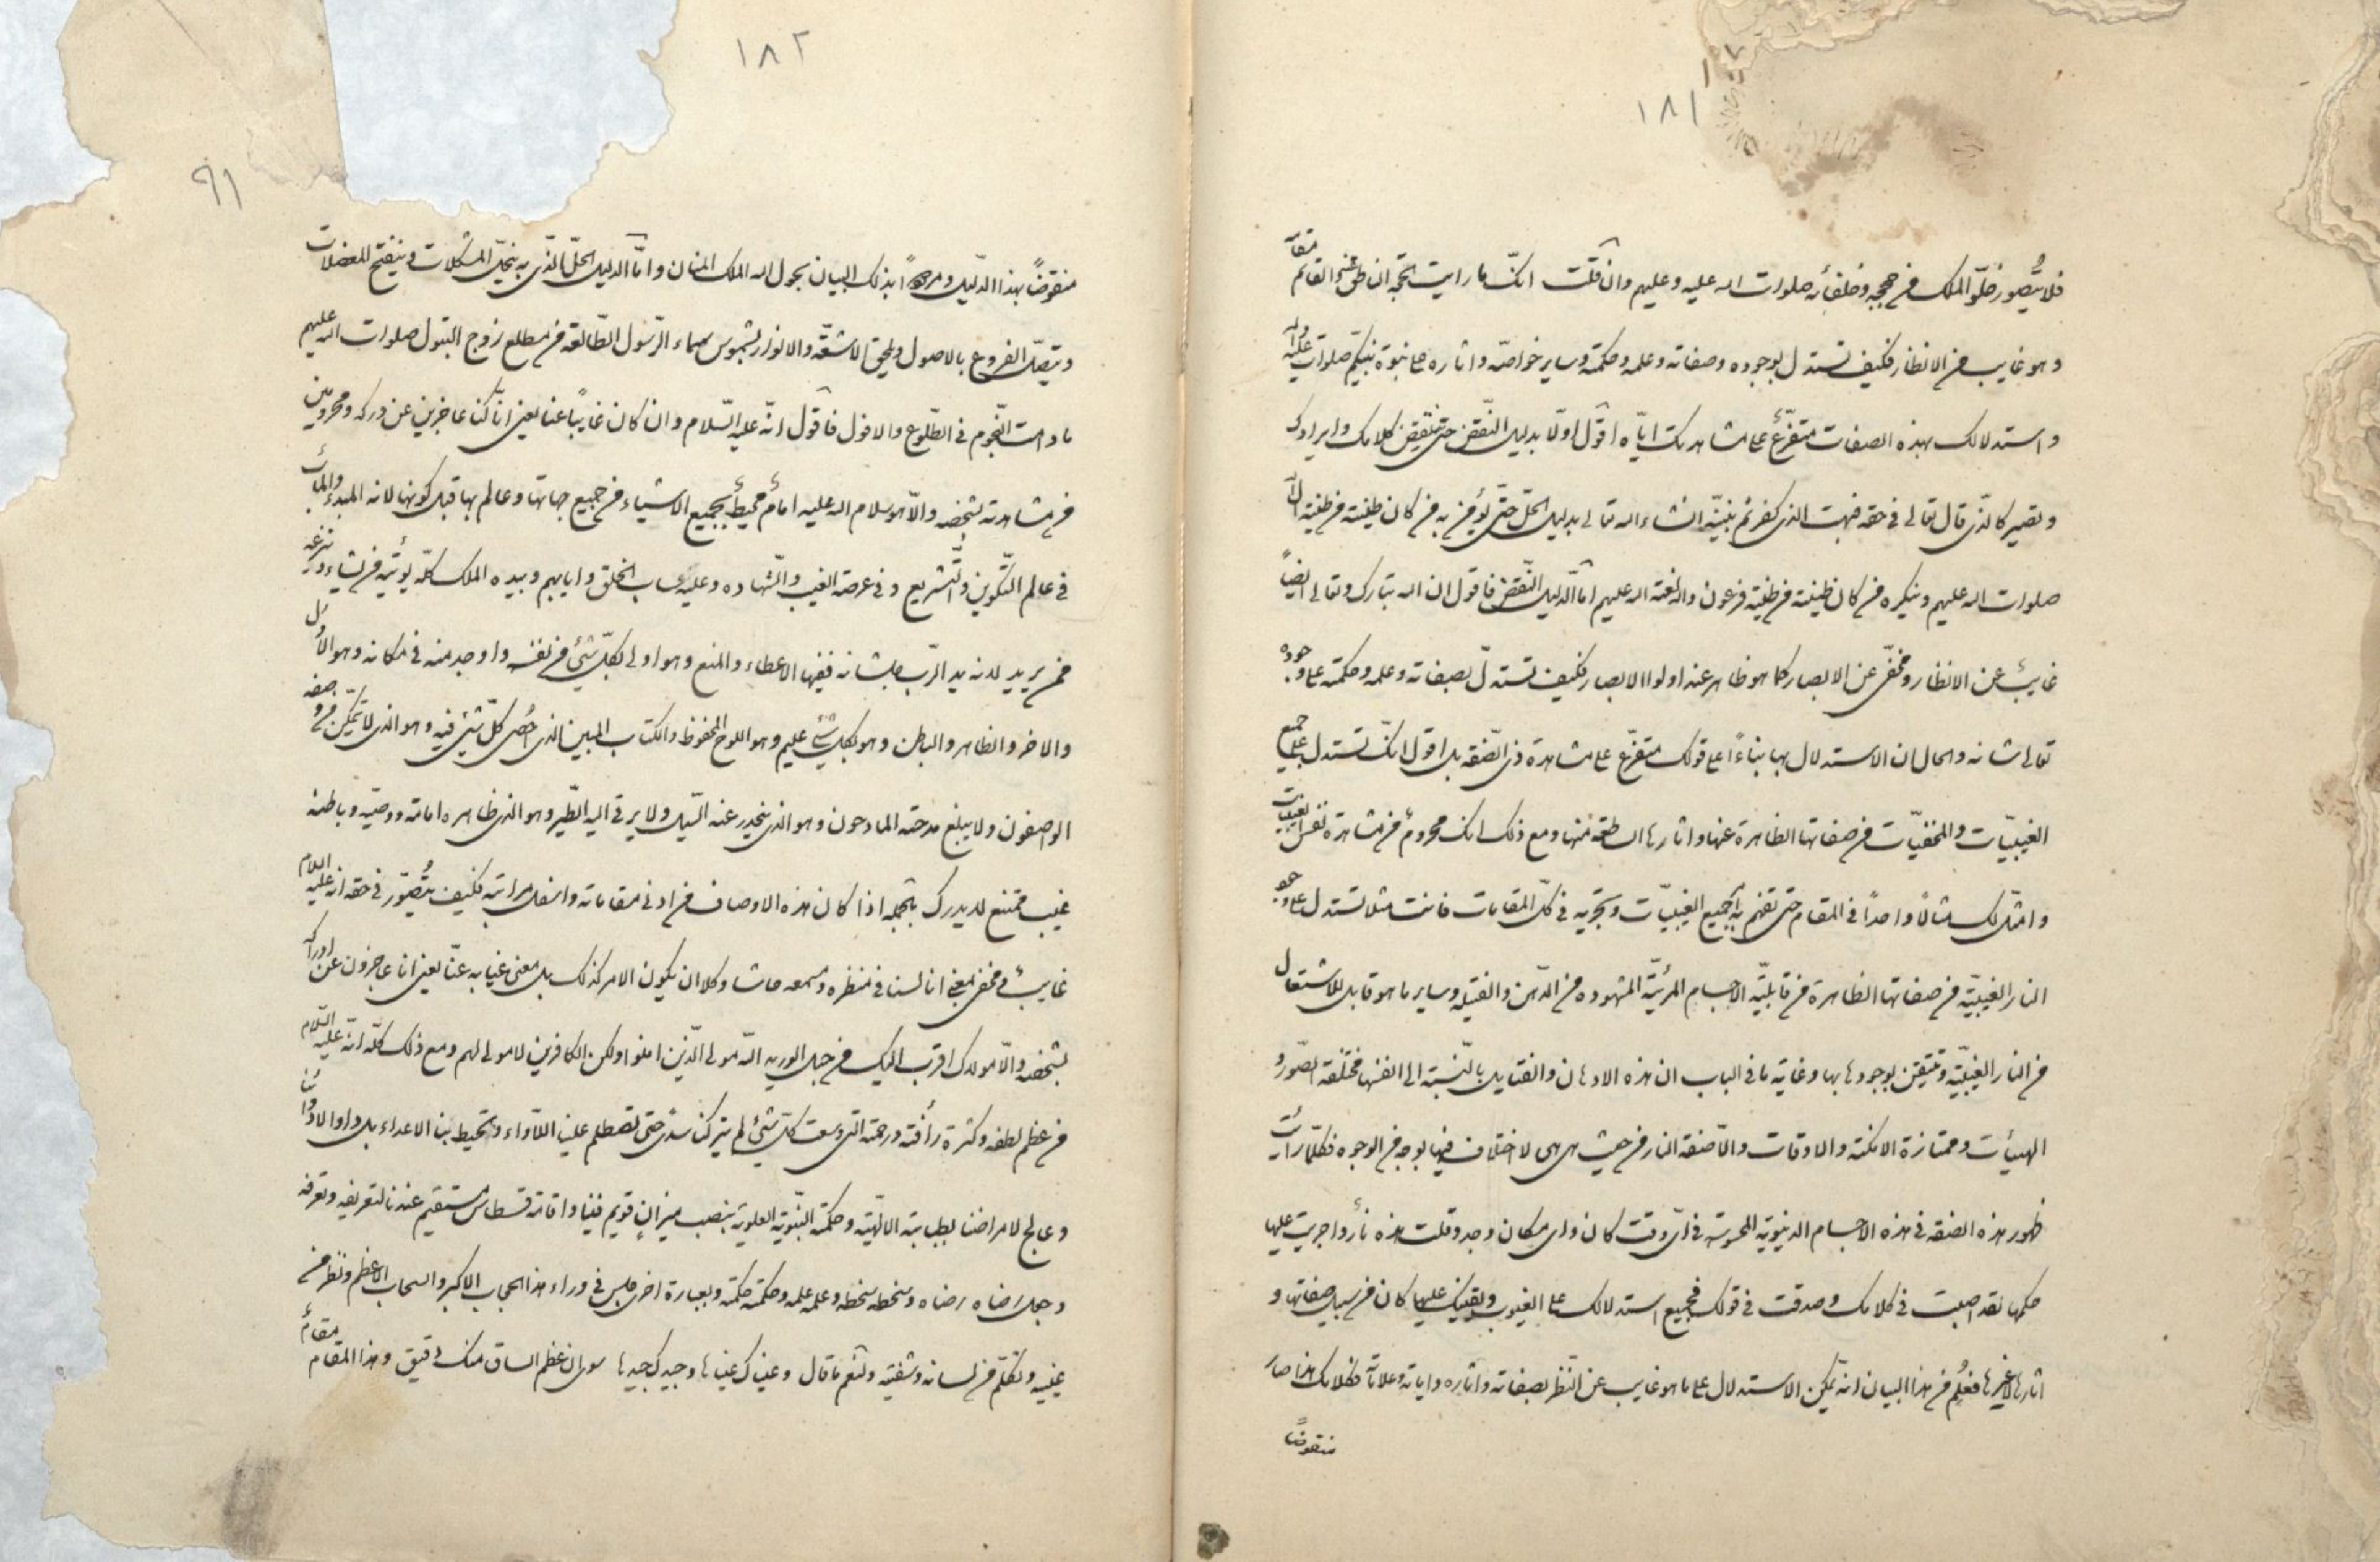 ١٨١
فلا يتصور خلو الملك من حججه وخلفائه صلوات الله عليه وعليهم وان قلت انك ما رايت الحجة الناطق عنه القائم مقامه
وهو غايب من الانظار فكيف تستدل بوجوده وصفاته وعلمه وحكمته وساير خواصه واثاره على نبوة نبيكم صلوات الله عليه واله
واستدلالك بهذه الصفات متفرع على مشاهدتك اياه اقول اولا بدليل النقض حتى ننقض كلامك وايرادك
وتصير كالذى قال تعالى فى حقه فبهت الذى كفر ثم نبينه انشاء الله تعالى بدليل الحل حتى يؤمن به من كان طينته من طينة ال
صلوات الله عليهم وينكره من كان طينته من طينة فرعون واله لعنة الله عليهم اما الدليل النقض فاقول ان الله تبارك وتعالى ايضاً
غايبٌ عن الانظار ومخفى عن الابصار كما هو ظاهر عند اولوا الابصار فكيف تستدل بصفاته وعلمه وحكمته على وجوده
تعالى شانه والحال ان الاستدلال بها بناءً على قولك متفرع على مشاهدة ذى الصفة بل اقول انك تستدل على جميع
الغيبيّات والمخفيّات من صفاتها الظاهرة عنها واثارها الساطعة منها ومع ذلك انك محروم من مشاهدة نفس الغيبيات
وامثل لك مثالاً واحداً فى المقام حتى تفهم به جميع الغيبيّات وتجريه فى كل المقامات فانت مثلا تستدل على وجود
النار الغيبيّة من صفاتها الظاهرة من قابليّة الاجسام المرئيّة المشهوده من الدهن والفتيله وساير ما هو قابل للاشتعال
من النار الغيبيّة وتتيقن بوجودها بها وغاية ما فى الباب ان هذه الادهان والفتايل بالنسبة الى انفسها مختلفة الصور و
الهيئات وممتازة الامكنة والاوقات والا صفة النار من حيث هى هى لا اختلاف فيها بوجه من الوجوه فكلما رايت
ظهور هذه الصفة فى هذه الاجسام الدنيوية المحسوسة فى اى وقت كان واى مكان وجد وقلت هذه نارٌ واجريت عليها
حكمها لقد اصبت فى كلامك وصدقت فى قولك فجميع استدلالك على الغيوب ويقينك عليها كان من سبيل صفاتها و
اثارها لا غيرها فعُلم من هذا البيان انه يمكن الاستدلال على ما هو غايب عن النظر بصفاته واثاره واياته وعلاماته فكلامك هذا صار
منقوضاً
١٨٢
٩١
منقوضاً بهذا الدليل و بذلك البيان بحول الله الملك المنان واما الدليل الحل الذى به ينحل المشكلات وينفتح المعضلات
ويتصل الفروع بالاصول ويلحق الاشعة والانوار بشموس سماء الرسول الطالعة من مطلع زوج البتول صلوات الله عليهم
ما دامت النجوم فى الطلوع والافول فاقول انه عليه السلام وان كان غايبًا عنا يعنى انا كنا عاجزين عن دركه ومحرومين
من مشاهدته بشخصه والا هو سلام الله عليه امامٌ محيطٌ بجميع الاشياء من جميع جهاتها وعالم بها قبل كونها لانه المبدء والمآب
فى عالم التكوين والتشريع وفى عرصة الغيب والشهاده وعليه حساب الخلق وايابهم وبيده الملك كله يؤتيه من يشاء وينزعه
ممن يريد لانه يد الرب جل شانه ففيها الاعطاء والمنع وهو اولى بكل شئ من نفسه واوجد منه فى مكانه وهو الاول
والاخر والظاهر والباطن وهو بكل شئ عليم وهو اللوح المحفوظ والكتاب المبين الذى احُصى كل شئ فيه وهو الذى لا يمكن من وصفه
الواصفون ولا يبلغ مدحته المادحون وهو الذى ينحدر عنه السيل ولا يرقى اليه الطير وهو الذى ظاهره امامة ووصيه وباطنه
غيب ممتنع لا يدرك بالجمله اذا كان هذه الاوصاف من ادنى مقاماته واسفل مراتبه فكيف يتصور فى حقه انه عليه السلام
غايبٌ ومخفى بمعنى انا لسنا فى منظره ومسمعه حاشا وكلا ان يكون الامر كذلك بل معنى غيابه عنا يعنى انا عاجزون عن ادراكه
بشخصه والا مولاك اقرب اليك من حبل الوريد الله مولى الذين امنوا ولكن الكافرين لا مولى لهم ومع ذلك كله انه عليه السلام
من عظم لطفه وكثرة رأفته ورحمته التى وسعت كل شئ لم يتركنا سدى حتى تصطلم علينا اللاواء وتحيط بنا الاعداء بل داوا لادوائنا
وعالج لامراضنا بطبابته الالهيّة وحكمته النبويّة العلويّة بنصب ميزانٍ قويم فينا واقامة قسطاس مستقيم عندنا لتعريفه وتعرفه
وجعل رضاه رضاه وسخطه سخطه وعلمه علمه وحكمته حكمته وبعبارة اخرى جلس فى وراء هذا الحجاب الاكبر والسحاب الاعظم ونظر من
عينيه وتكلم من لسانه وشفتيه ولنعم ما قال وعيناك عيناها وجيدك جيدها سوى ان عظم الساق منك دقيق وهذا المقام مقامٌ